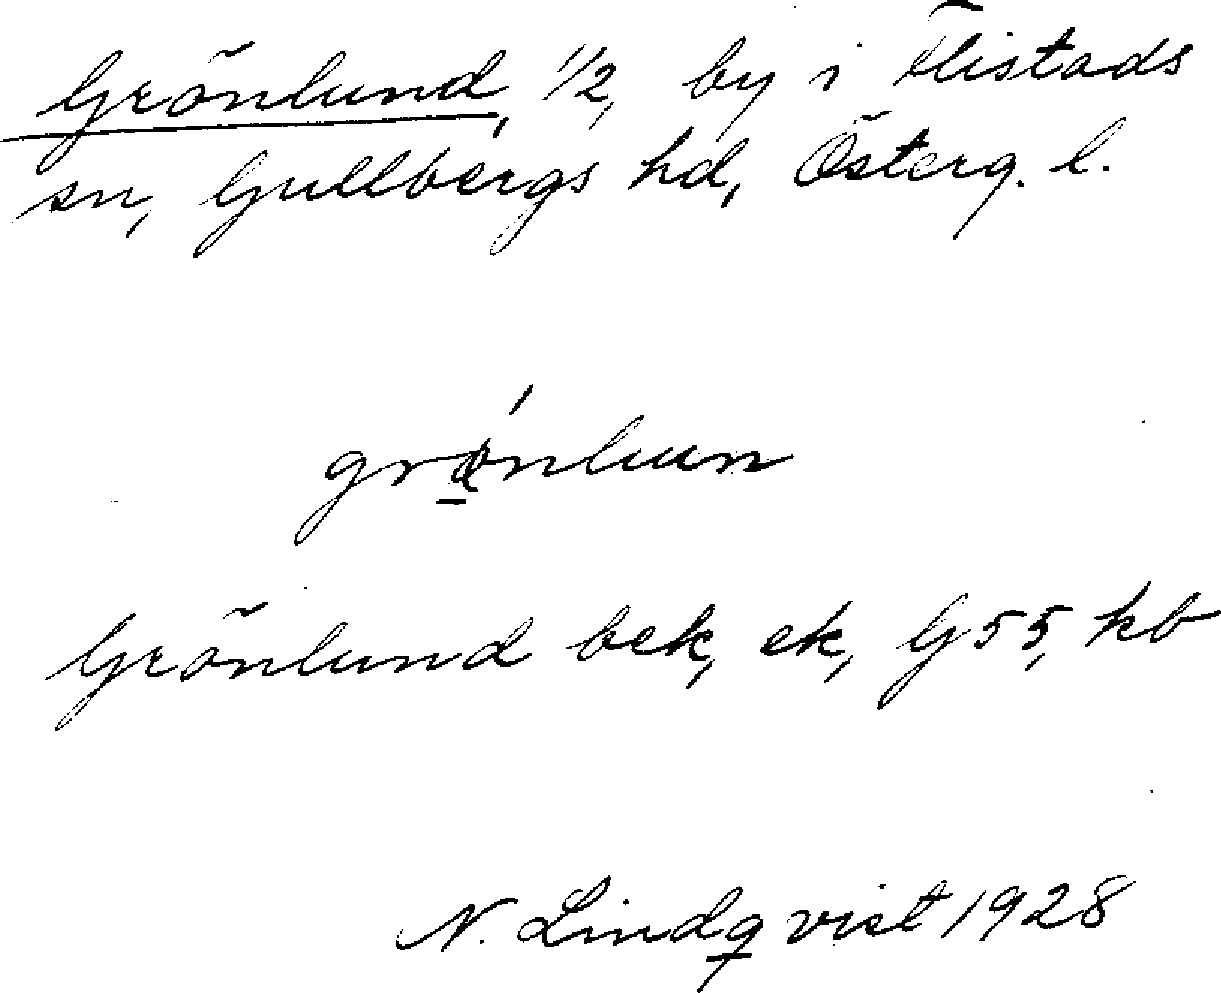 Grönlund, 1/2, by i Flistads
sn, Gullbergs hd, Österg. l.
Grönlund bek, ek, G55, kb
N. Lindqvist 1928